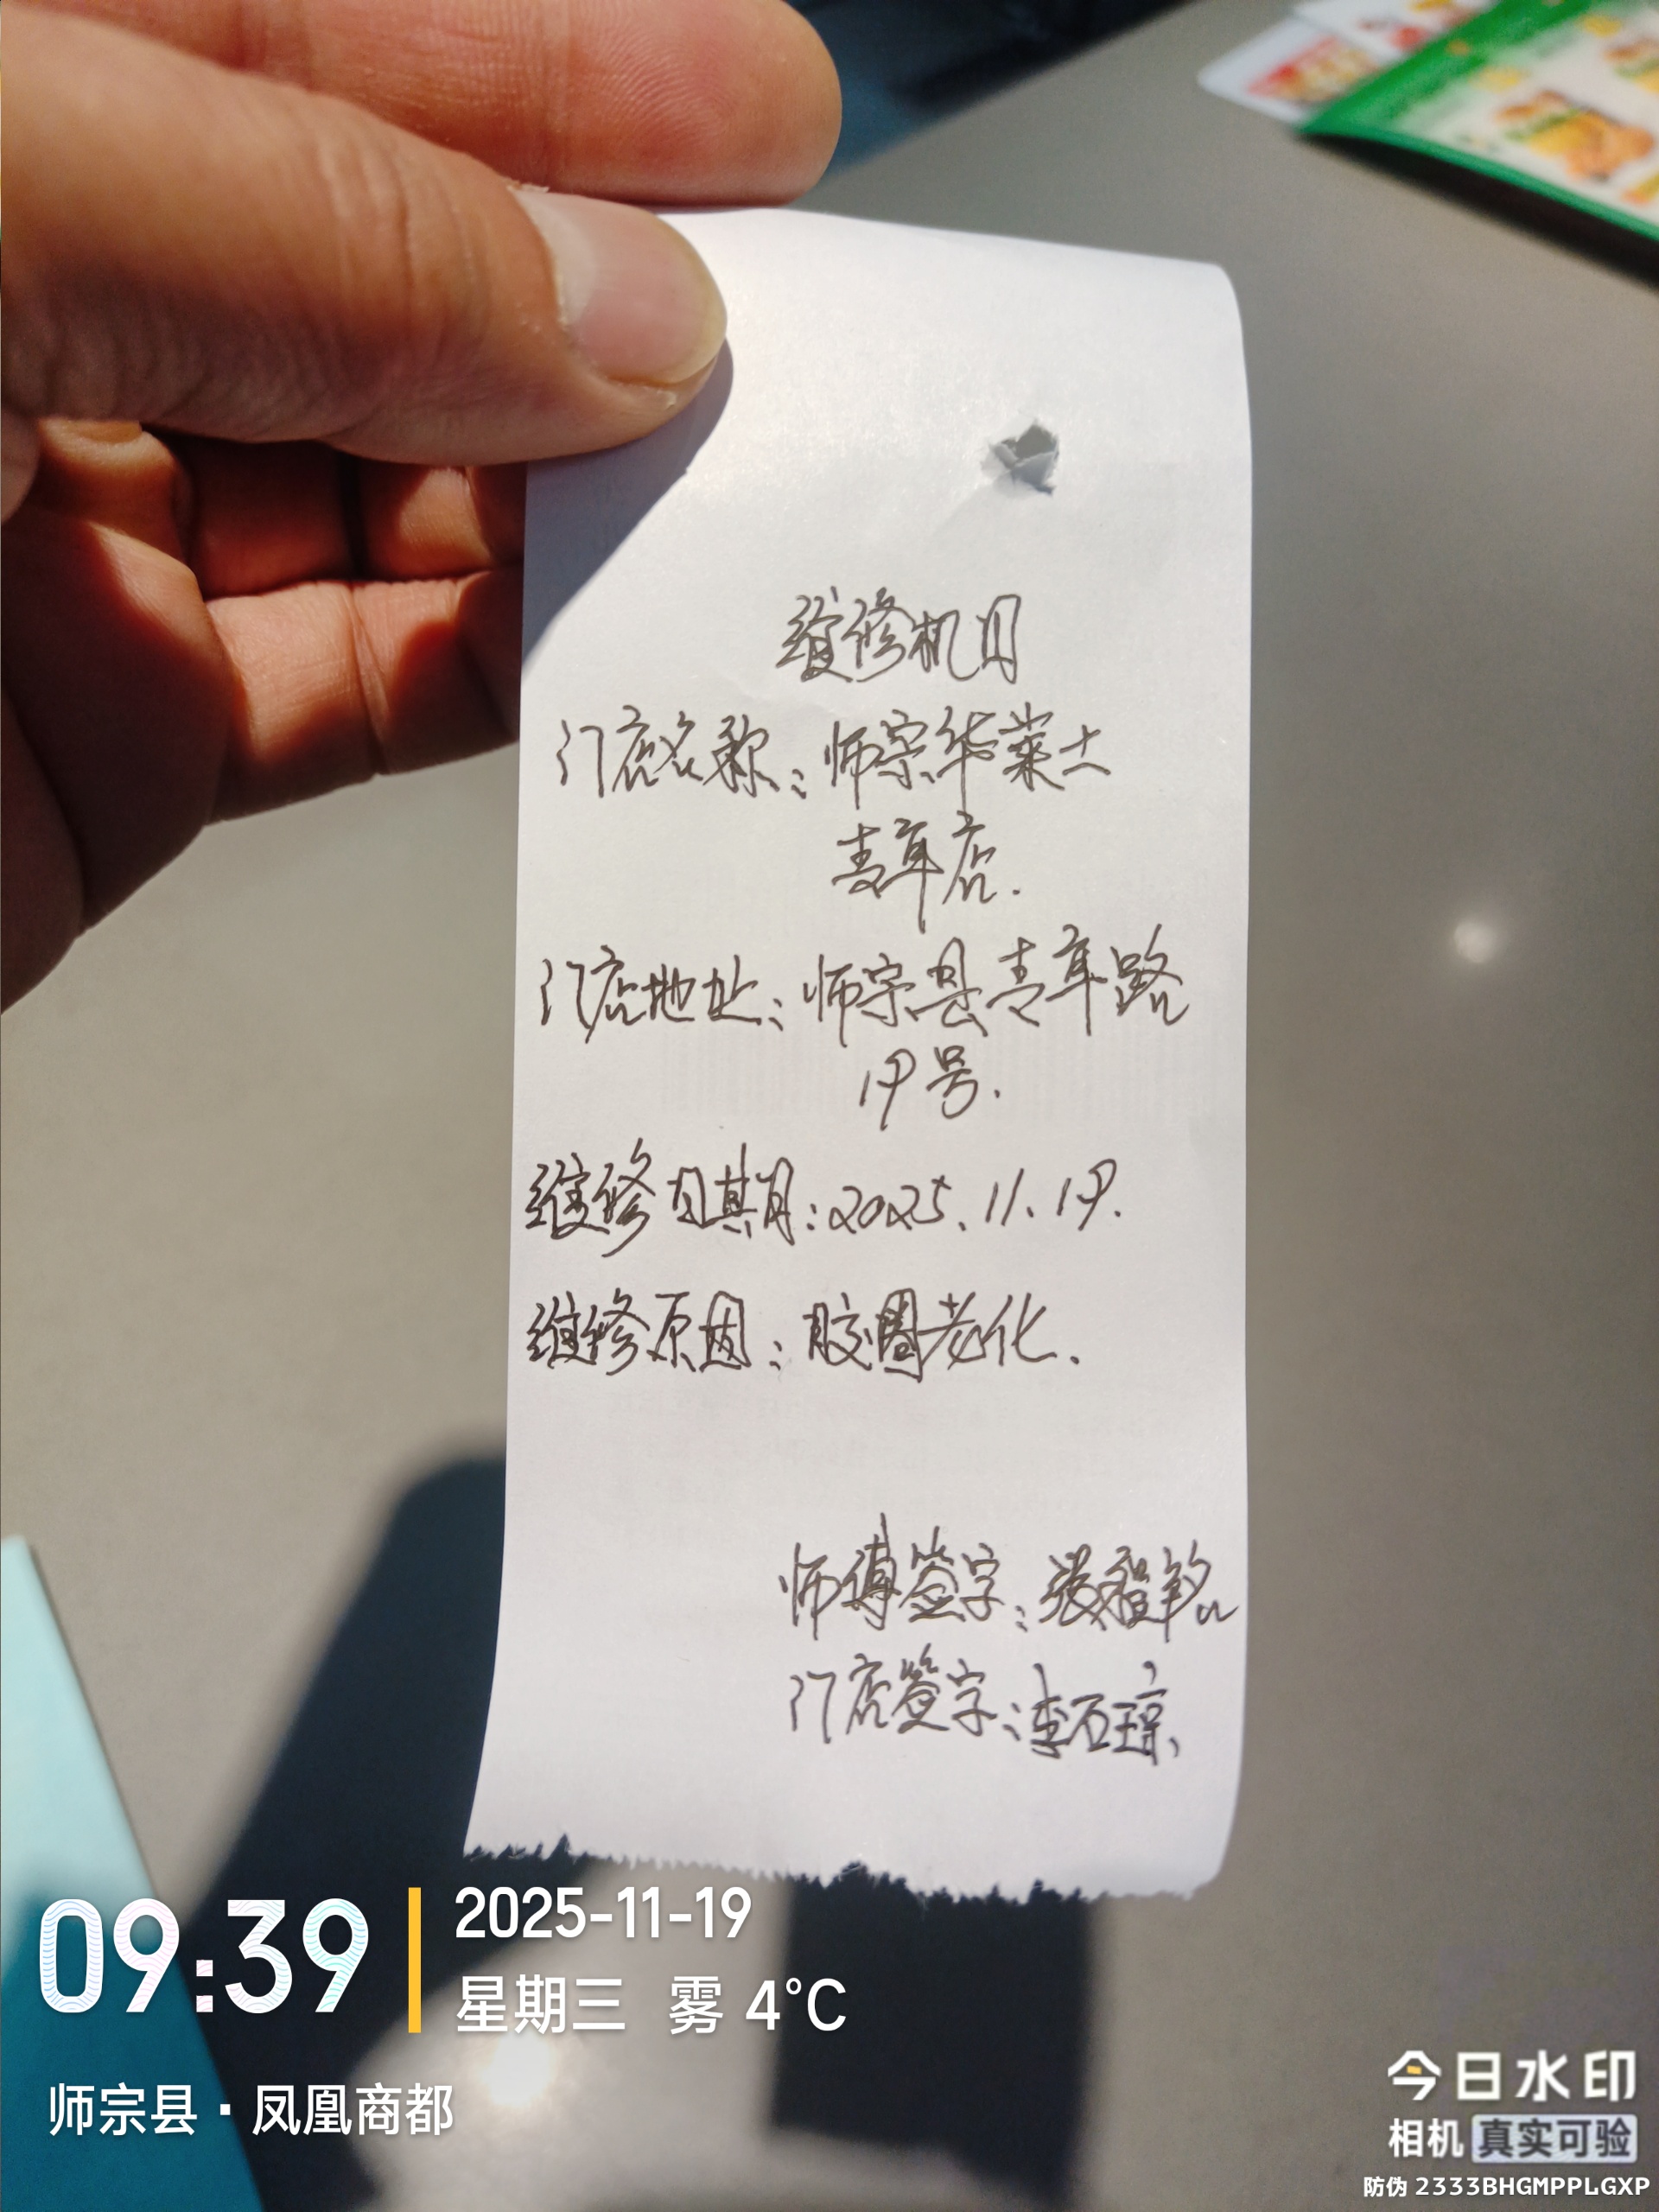 维修机用
门店名称：师宗华莱士
青年店.
门店地址：师宗县青年路
19号.
维修日期：2025.11.19.
维修原因：胶圈老化.
师傅签字：张程铭
门店签字：李石琼
09:39
2025-11-19
星期三 雾 4°C
师宗县·凤凰商都
今日水印
相机 真实可验
防伪 2333BHGMPPLGXP